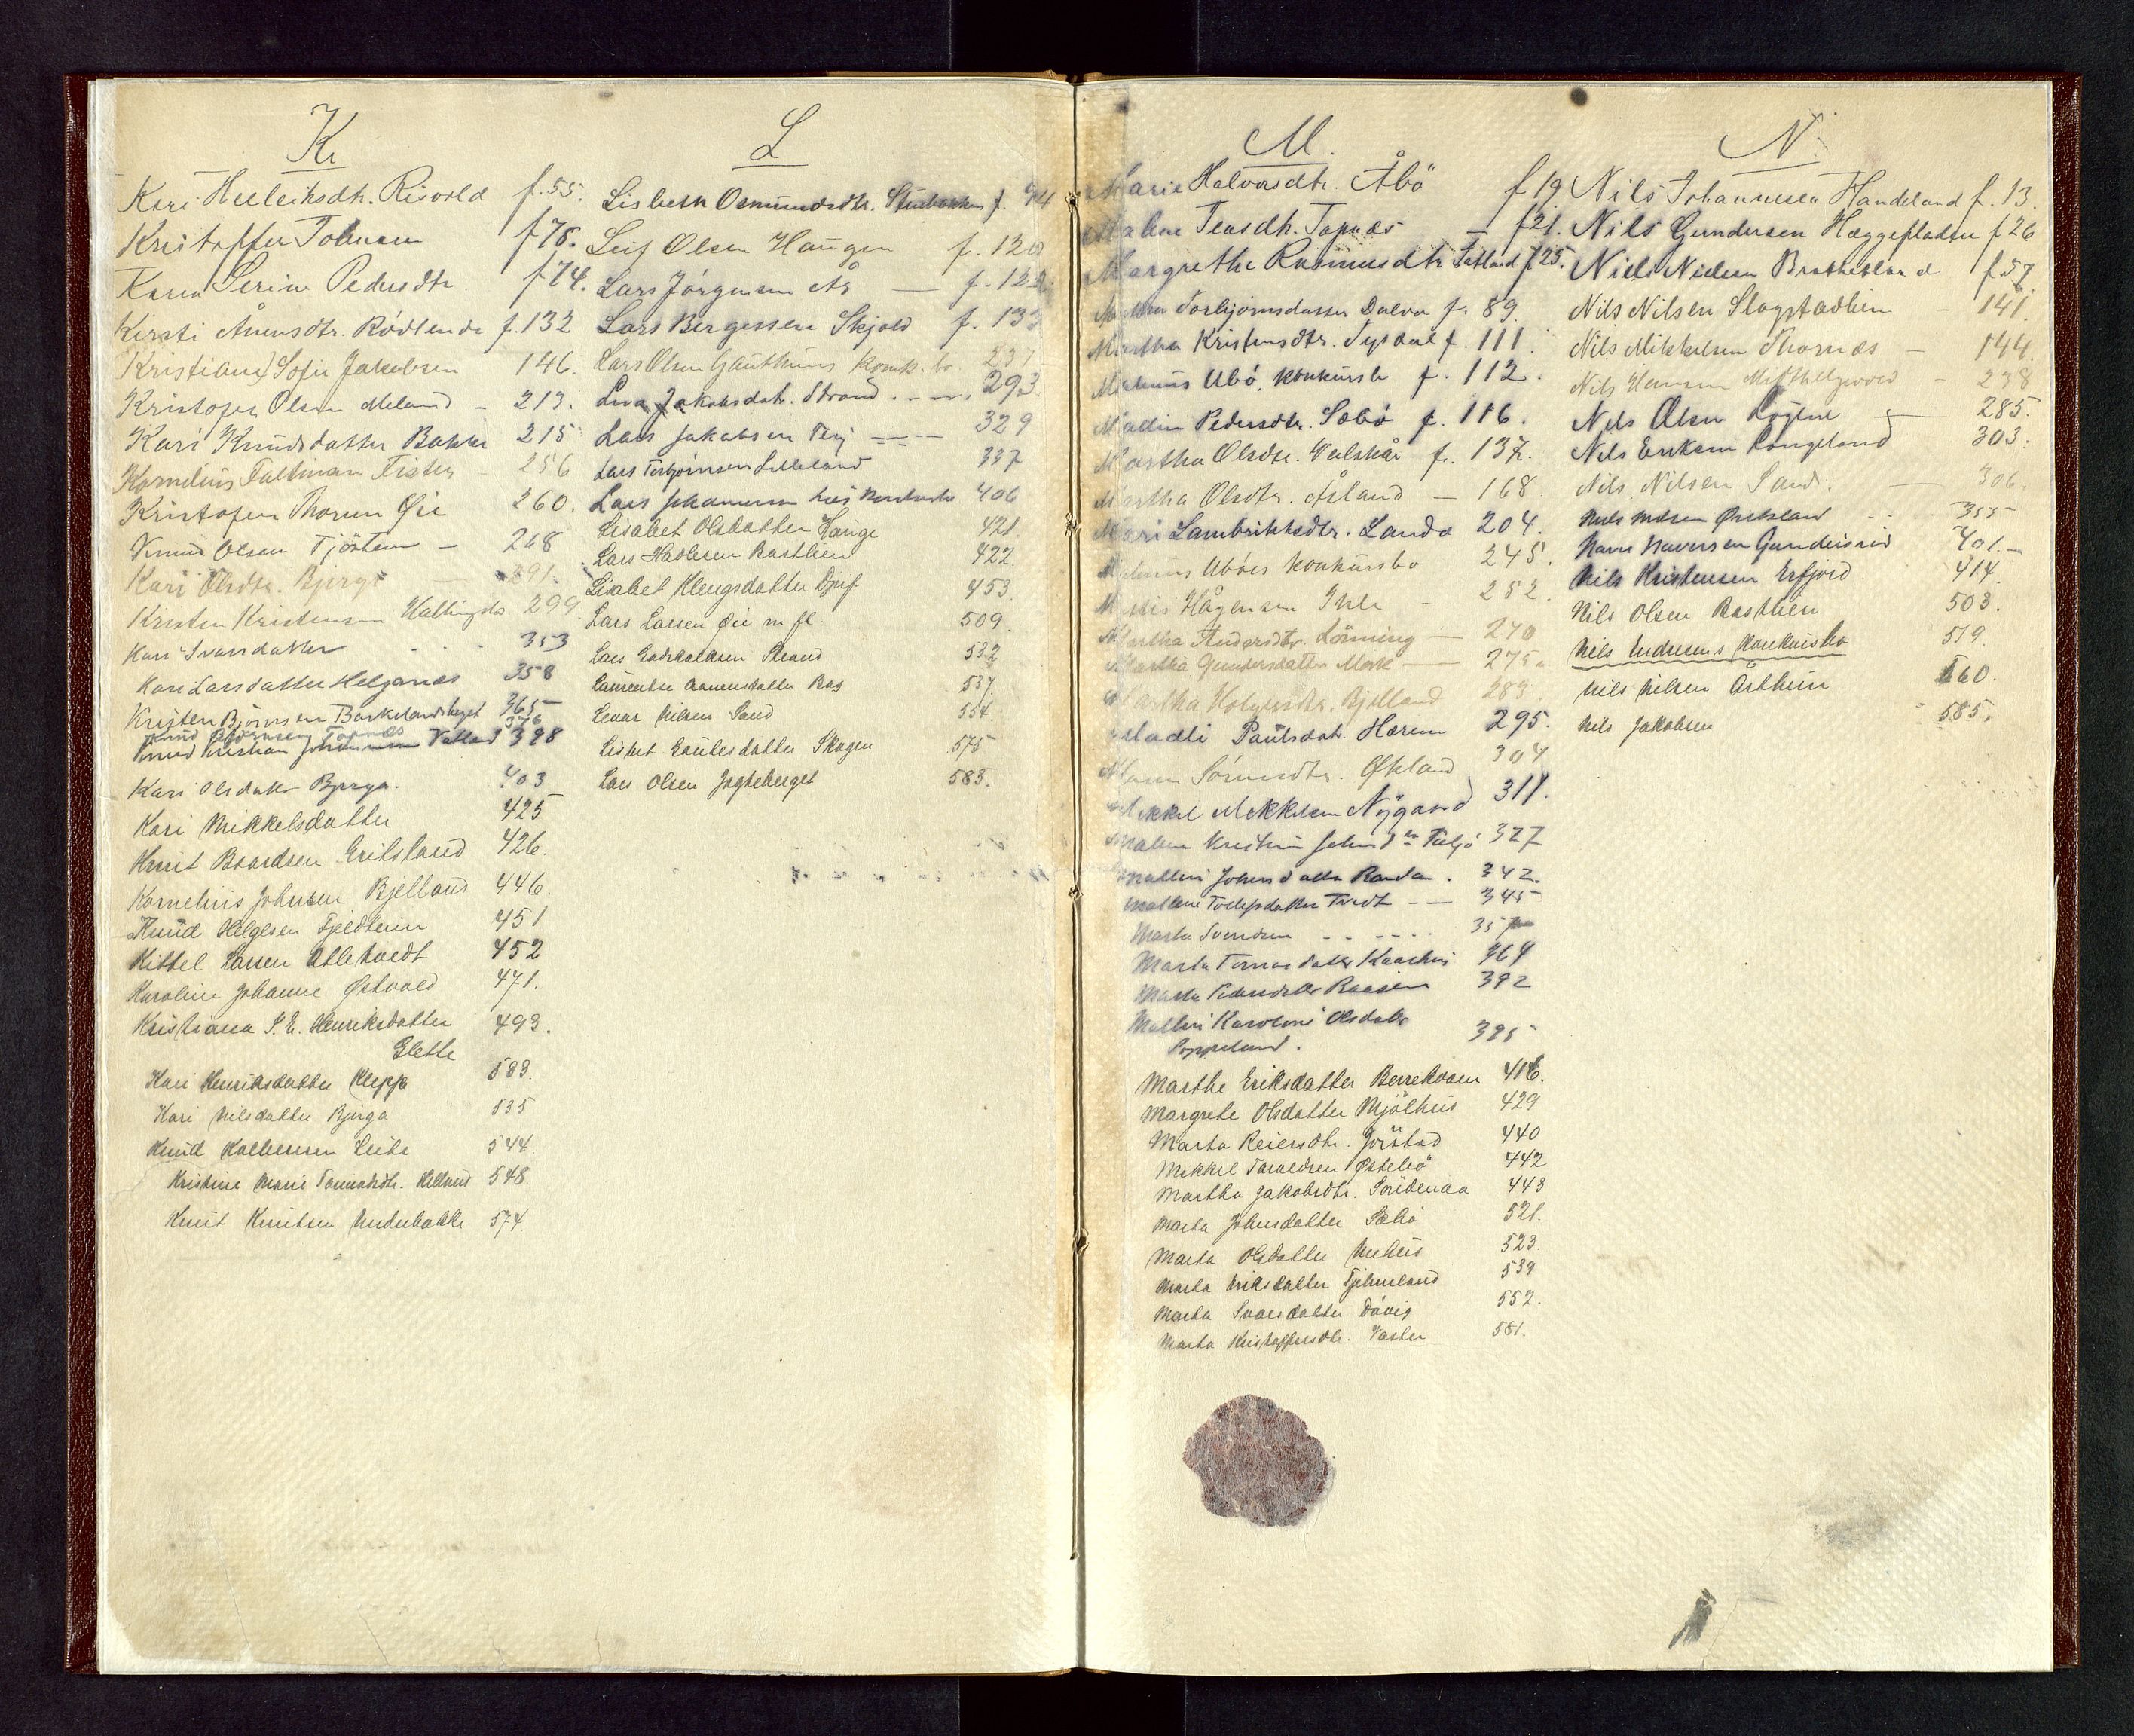 K
Kari Helleiksdtr. Risvold f. 55.
Kristoffer Johnsen f 76.
Karen Serine Pedersdtr. f 74.
Kirsti Ånensdtr. Rödlende f. 132
Kristiane Sofie Jakobsen 146.
Kristofer Olsen Meland - 213.
Kari Knudsdatter Bakke 215
Kornelius Faltinsen Fister - 256
Kristofer Thorsen Öie 260.
Knud Olsen Tjösten - 268
Kari Olsdtr. Bjerge 291.
Kristen Kristensen 299
Kari Ivarsdatter 353
Kari Larsdatter Helganæs 358
Kristen Björnsen Barkelandsberget 365
Knud Tapnæs 376
Knud Kristian Johannessen Vatland 398
Kari Olsdatter Bjerga. 403
Kari Mikkelsdatter 425
Knut Baardsen Eriksland 426.
Kornelius Johnsen Bjelland 446.
Knud Helgesen Fjeldheim 451
Kittel Larsen Utlehvedt 452
Karoline Johanne Østvold 471.
Kristiana P. E. Henriksdatter 493.
Glette
Kari Henriksdatter Klepp 533.
Kari Nilsdatter Bjerga 535
Knud Kolbensen Leite 544.
Kristine Marie Tønnesdtr. Helland 548
Knut Knutsen Nederbakke 574.
L
Lisbeth Osmundsdtr. f. 94
Leif Olsen Haugen f. 120
Lars Jörgensen Aa — f. 122
Lars Bergessen Skjold f. 133
Lars Olsen Gauthuns konk. bo. 237
Liva Jakobsdatr. Strand 293
Lars Jakobsen Tøtlandsvik 329
Lars Torbjörnsen Lilleland 337
Lars Johannessen 406
Lisabet Olsdatter Hauge 421.
Lars Hadlesen Bastlien 422.
Lisabet Klengsdatter Djuf 453.
Lars Larsen Öie m fl. 509.
Lars Godskalksen Strand 532
Lauentse Aanensdatter Bog 537.
Lenar Nilsen Sand 554.
Lisbet Gautesdatter Skogen 575
Lars Olsen Jagteberget 583.
M.
Marie Halvorsdtr. Åbö f 19.
Malene Jensdtr. Tapnæs — f 21.
Margrethe Rasmusdtr. Tatland f 25.
Martha Torbjörnsdatter Dalva f. 89.
Martha Kristensdtr. Tysdal f. 111
Malenus Ubö, konkursbo f. 112.
Mallin Pedersdtr. Sæbö f. 116.
Martha Olsdtr. Valskår f. 137.
Martha Olsdtr. Åsland — 168
Mari Lambrikksdtr. Landa 204.
Malenus Uböes konkursbo 245.
Mathis Hågensen - 252.
Martha Andersdtr. Lönning — 270
Martha Gundersdatter Mork — 275.
Martha Holgersdtr. Bjelland 283
Madli Paulsdatr. Hærem 295.
Maren Sörensdtr. Økland 304
Mikkel Mikkelsen Nygaard 311.
Malene Kristine Johnsdtr Faljo 327
Malleni Johnsdatter Randa. 342.
Mallene Tollefsdatter Tvedt — 345
Marta Svendsen 357
Marta Tomasdatter Kaarhus 364
Marta Pedersdatter Raasen 392
Malleni Karoline Olsdatter
Poppeland. 395
Marthe Eriksdatter Berrekvam 416.
Margrete Olsdatter Mjölhus 429
Marta Reiersdtr. Jörstad 440
Mikkel Taraldsen Østebö 442
Martha Jakobsdtr. Soridenaa 443
Marta Johnsdatter Sæbö 521.
Marta Olsdatter Nehus 523.
Marta Eriksdatter Tjelmeland 539
Marta Svaesdatter Dövig 552.
Marta Kristoffersdtr. Vaster 581.
N
Nils Johannesen Handeland f. 13.
Nils Gundersen Hæggefladen f 26
Niels Nielsen Bratthetland f 57.
Nils Nilsen Slogstadlien - 141.
Nils Mikkelsen Thornæs — 144.
Nils Hansen - 238
Nils Olsen Løgene 285.
Nils Eriksen Longeland 303.
Nils Nilsen Sand. — 306.
Nils Nilsen Øksland 355
Navn Navnsen Gundersrud 401.
Nils Kristensen Erfjord 414.
Nils Olsen Bastlien 503.
Nils Endresens konkursbo 519.
Nils Nilsen Ørtheim 560.
Nils Jakobsen 585.